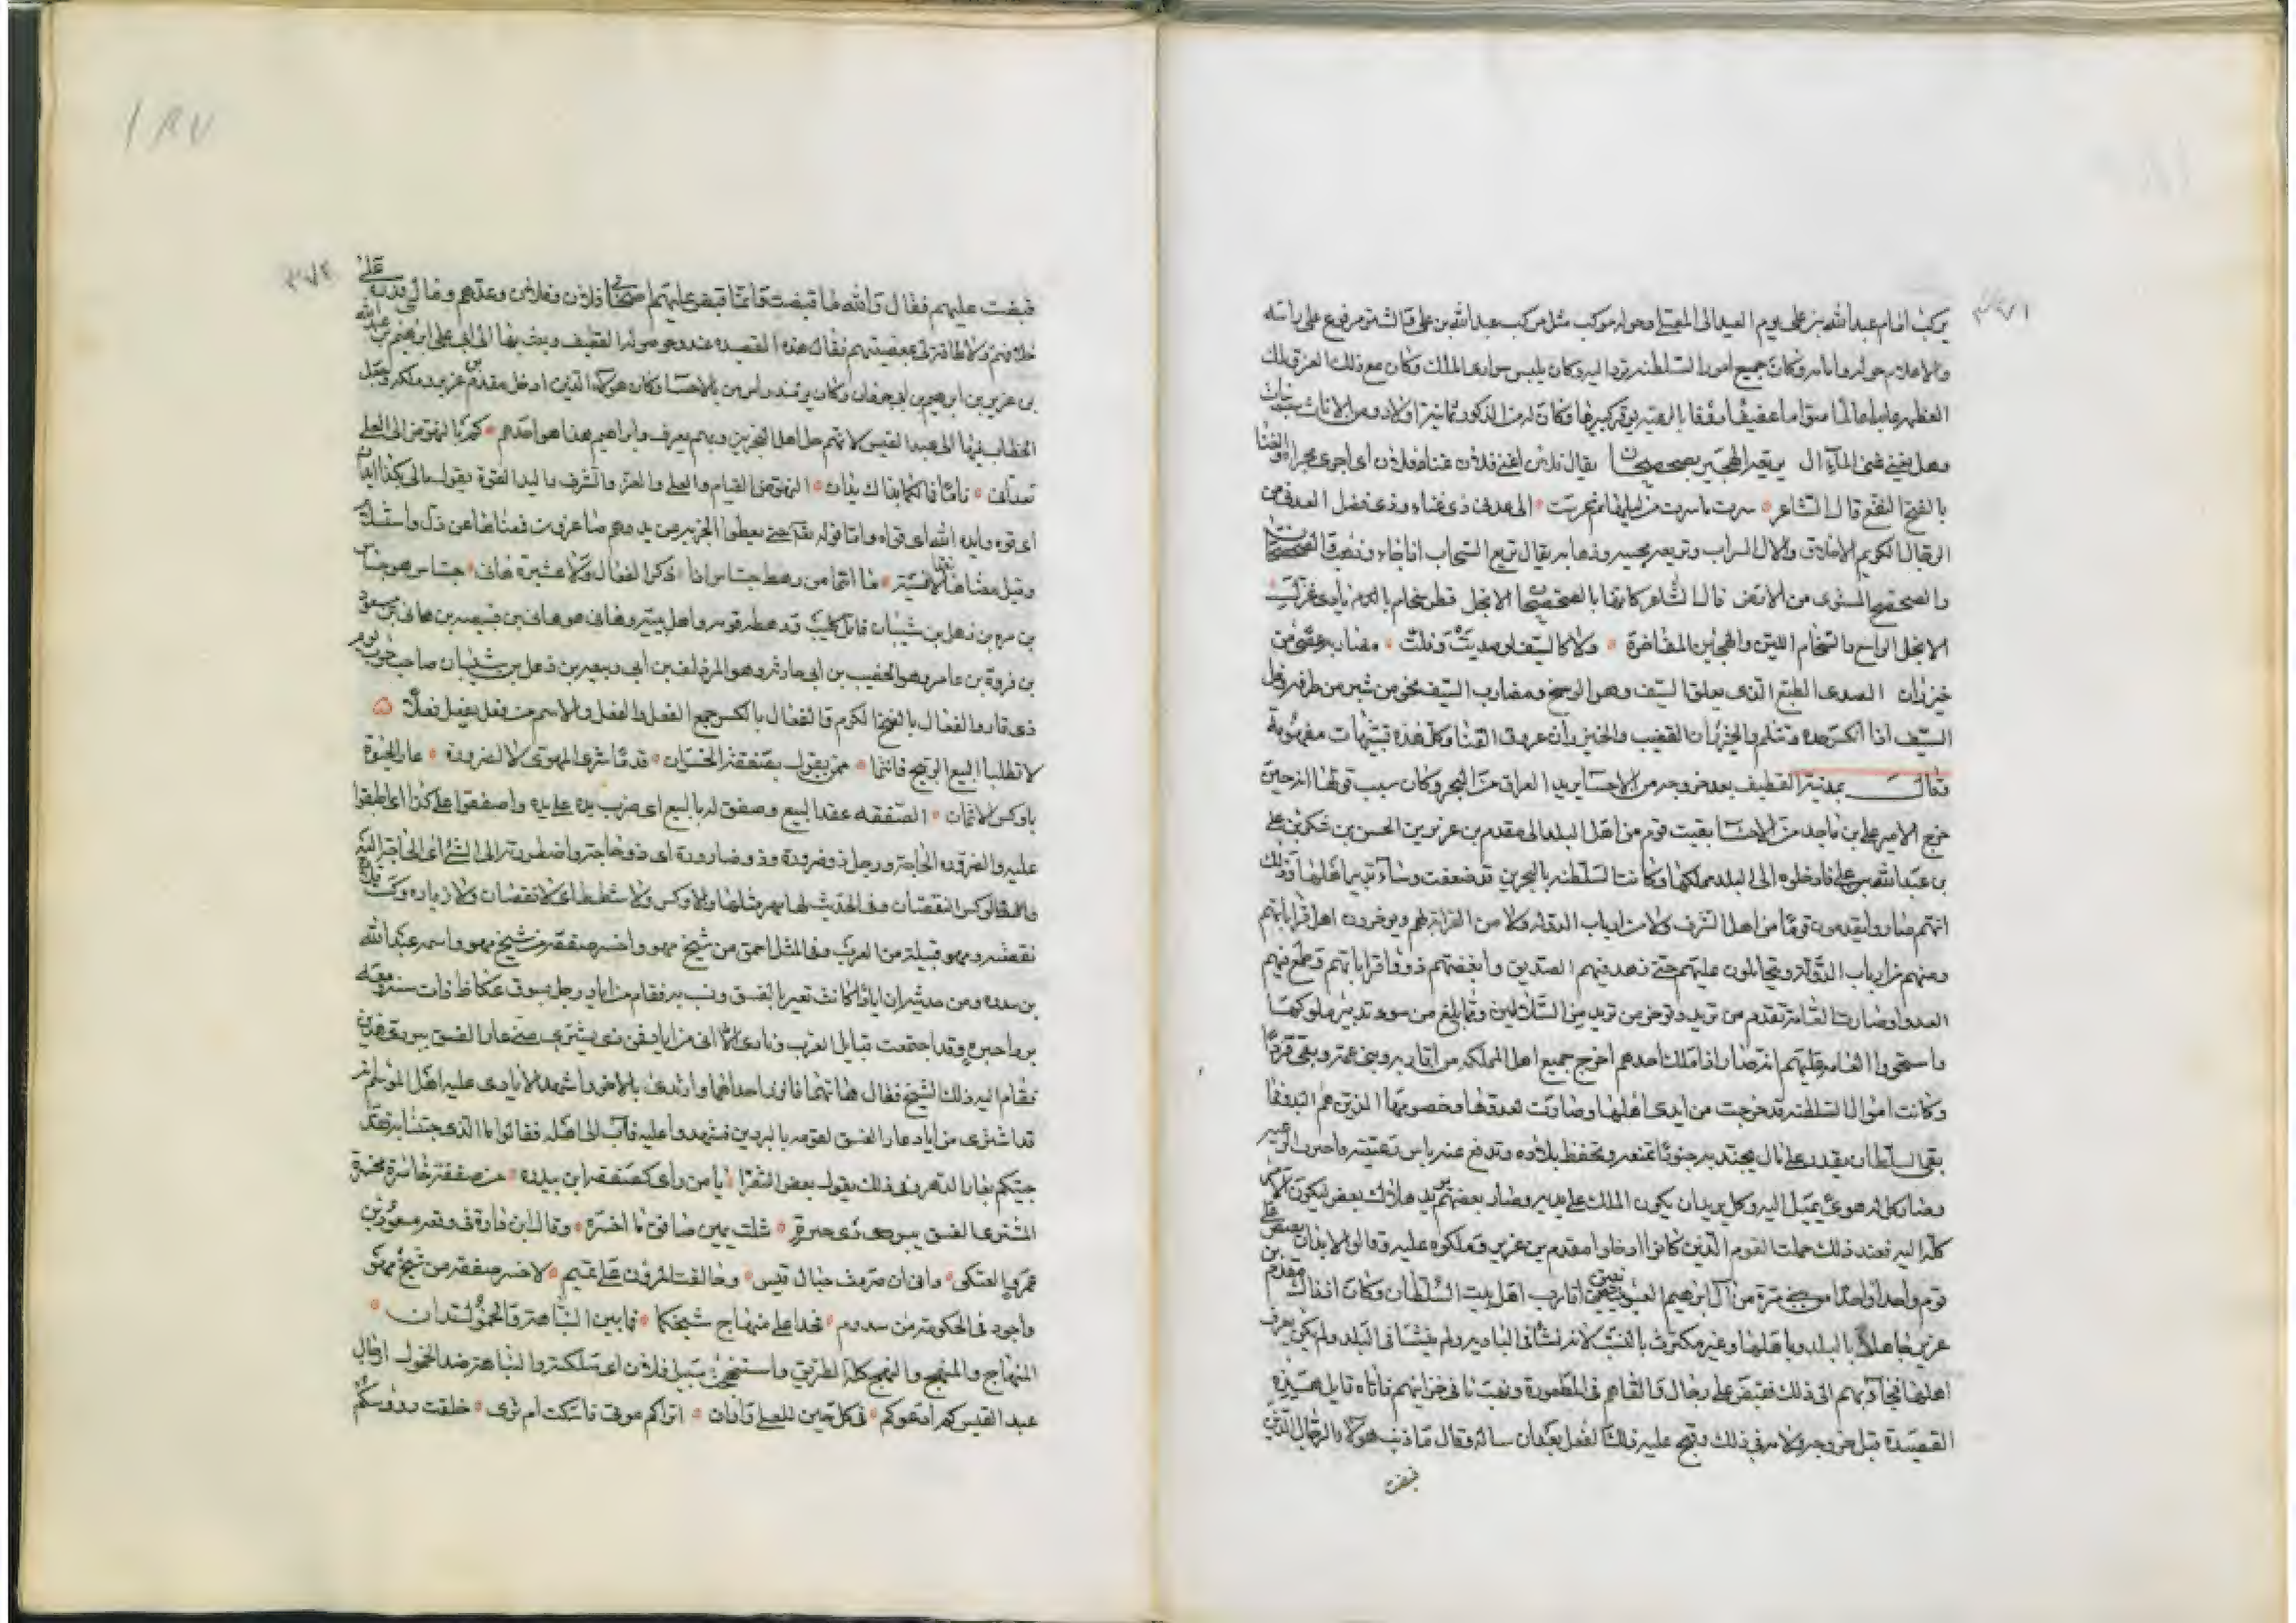 يركب امام عبد الله بن علي يوم العيد الى المصلى وحوله موكب مثل موكب عبد الله بن علي والشتر مرفوع على راسه
والاعلام حوله وامامه وكانت جميع امور السلطنة ترد اليه وكان يلبس سوارى الملك وكان مع ذلك العز والملك
العظيم عابدا عالما صواما عفيفا رفيقا بالرعية يوقر كبيرها وكان له من الذكور ثمانية اولاد ومن الاناث
وهل يغني غنى الماء ال يريقه الهجير بصحصحان يقال فلان اغنى فلان غناء فلان اى اجرى مجراه والغناء
بالفتح النفع قال الشاعر سرت ما سرت من ليلها ثم عرست الى عدى ذى غناء وذى فضل العدى من
الرجال الكريم الاخلاق والال السراب وتريعه مجيئه وذهابه يقال تريع السحاب اذا جاء وذهب والصحصحان
والصحصح المستوى من الارض قال الشاعر كانها بالصحصحان الانجل قطن سخام بايادى غزل
الانجل الواسع والسخام اللين والهجير المفاخرة ولا كالسيف لو صديت وفلت مضاربه عصى من
خيزران الصدى الطبع الذى يعلق السيف وهو الوسخ ومضارب السيف نحو من شبر من طرفه وفل
السيف اذا انكسر حده وتثلم والخيزران القضيب والخيزران عروق القنا وكل هذه تشبيهات مفهومة
وقال بمدينة القطيف بعد خروجه من الاحساء يريد العراق من البحر وكان سبب قولها انه حين
خرج الامير علي بن ماجد من الاحسا بقيت قوم من اهل البلد الى مقدم بن عزيز بن الحسن بن شكر بن علي
بن عبد الله بن علي فادخلوه الى البلد وملكها وكانت السلطنة بالبحرين قد ضعفت وساء تدبير اهلها وذلك
انهم صاروا يقدمون قوما من اهل الشرف ولا من ارباب الدولة ولا من القرابة لهم ويوخرون اهل قراباتهم
ومنهم من ارباب الدولة ويتحاملون عليهم حتى زهد فيهم الصديق وابغضهم ذووا قراباتهم وطمع فيهم
العدو وصارت العامة تقدم من تريد وتوخر من تريد من السلاطين ومما بلغ من سوء تدبير ملوكها
واستحواذ العامة عليهم انه صار اذا ملك احدهم اخرج جميع اهل المملكة من اقاربه وبنى عمه وبقى فردا
وكانت اموال السلطنة قد خرجت من ايدى اهلها وصارت لعدوها وخصومها الذين هم البدو فما
بقى السلطان يقدر على مال يجند به جنودا تمنعه وتحفظ بلاده وتدفع عنه باس رعيته
وصار كل له هوى يميل اليه وكل يريد ان يكون الملك على يديه وصار بعضهم يريد هلاك بعض ليكون الامر
كله اليه فعند ذلك حملت القوم الذين كانوا ادخلوا مقدم بن عزيز وملكوه عليه وقالوا لابد ان
قوم واحدا واحدا من ال ابرهيم العيونيين اقارب اهل بيت السلطان وكان اذ ذاك مقدم بن
عزيز جاهلا بالبلد وباهلها وغير مكترث بالنسب لانه نشأ فى البادية ولم ينشا فى البلد ولم يكن يعرف
اهلها فجاء بهم الى ذلك فقبض على رجال والقاهم فى المطمورة ونهب ما فى خزائنهم فاتاه قايل هذه
القصيدة قبل خروجه ولامه فى ذلك وقبح عليه ذلك الفعل بعد ان ساله وقال ما ذنب هولاء الرجال الذين
قبضت
قبضت عليهم فقال والله ما قبضت وانما قبض عليهم اصحابي فلان وفلان وعدهم وقال
خلافهم ولا طاقة لي بمعصيتهم فقال هذه القصيدة عند وصوله القطيف وبعث بها الى ابي علي ابراهيم بن عبد الله
بن عزيز بن ابرهيم بن ابي جروان وكان يومئذ راس من بالاحسا وكان هولاء الذين ادخل مقدم بن عزيز وملكه وجعل
الخطاب فيها الى عبد القيس لانهم جل اهل البحرين وبهم يعرف وابراهيم هذا هو احدهم كم بالنهوض الى العلى
تعدانى ناما فما لكما بذاك يدان النهوض القيام والعلى والعز والشرف واليد القوة يقول مالى بكذا يدان
اى قوة وايده الله اى قواه واما قوله تعالى حتى يعطوا الجزية عن يد وهم صاغرون فمعناها عن ذل واستسلام
وقيل معناها نقدا لا نسية ما انتما من رهط جساس اذا ذكر الفعال ولا عشيرة هانى جساس هو جساس
بن مره بن ذهل بن شيبان قاتل كليب ورهطه قومه واهل بيته وهانى هو هانى بن قبيصة بن هانى بن مسعود
بن فروة بن عامر وهو الخصيب بن ابي حارثة وهو المزدلف بن ابي ربيعة بن ذهل بن شيبان صاحب حرب يوم
ذى قار والفعال بالفتح الكرم والفعال بالكسر جمع الفعل والفعل والاسم من فعل يفعل فعلا
لا تطلبا البيع الربيح فانتما ممن يقول بصفقة الخسران قدما شرى المهوى لا لضرورة عار الفسوة
باوكس الاثمان الصفقه عقد البيع وصفق له بالبيع اى ضرب يده على يده واصفقوا على كذا اى اطبقوا
عليه والضروره الحاجة ورجل ذو ضرورة وذو ضارورة اى ذو حاجة واضطررت الى الشئ اى الحاجة اليه
والوكس النقصان وفى الحديث لها مهر مثلها ولا وكس ولا شطط اى لا نقصان ولا زياده
نقصته ومهو قبيلة من العرب وفى المثل احمق من شيخ مهو واخسر صفقة من شيخ مهو واسمه عبد الله
بن بيدره ومن حديثه ان ايادا كانت تعير بالفسق وتسب به فقام من اياد رجل بسوق عكاظ ذات سنة ومعه
بردا حبرة وقد اجتمعت قبايل العرب ونادى الا انى من اياد فمن ذى يشترى منى عار الفسق ببردى هذين
فقام اليه ذلك الشيخ فقال هاتهما فاتزر باحداهما وارتدى بالاخر واشهد الايادى عليه اهل الموسم انه
قد اشترى من اياد عار الفسق لقومه بالبردين فشهدوا عليه فآب الى اهله فقالوا ما الذى جيتنا به فقال
جيتكم بعار الدهر وفى ذلك يقول بعض الشعرا يا من راى كصفقة ابن بيدره من صفقة خاسرة مخسرة
المشترى الفسق ببردى ذى حبره شلت يمين صافق ما اخسره وقال ابن دارة فى وقعة مسعود بن
عمرو العتكى وانى ان صروف حبال قيس وحالفت المزون على تميم لاخسر صفقة من شيخ مهو
واجود فى الحكومة من سدوم فخدا على منهاج شيخكما فما بين النباهة والخمول لتدان
المنهاج والمنهج والنهج كله الطريق واستنهجت سبيل فلان اى سلكته والنباهة ضد الخمول
عبد القيس كم ادعوكم فى كل حين للعلى واوان اتراكم موتى فاسكت ام ترى خلقت رووسكم